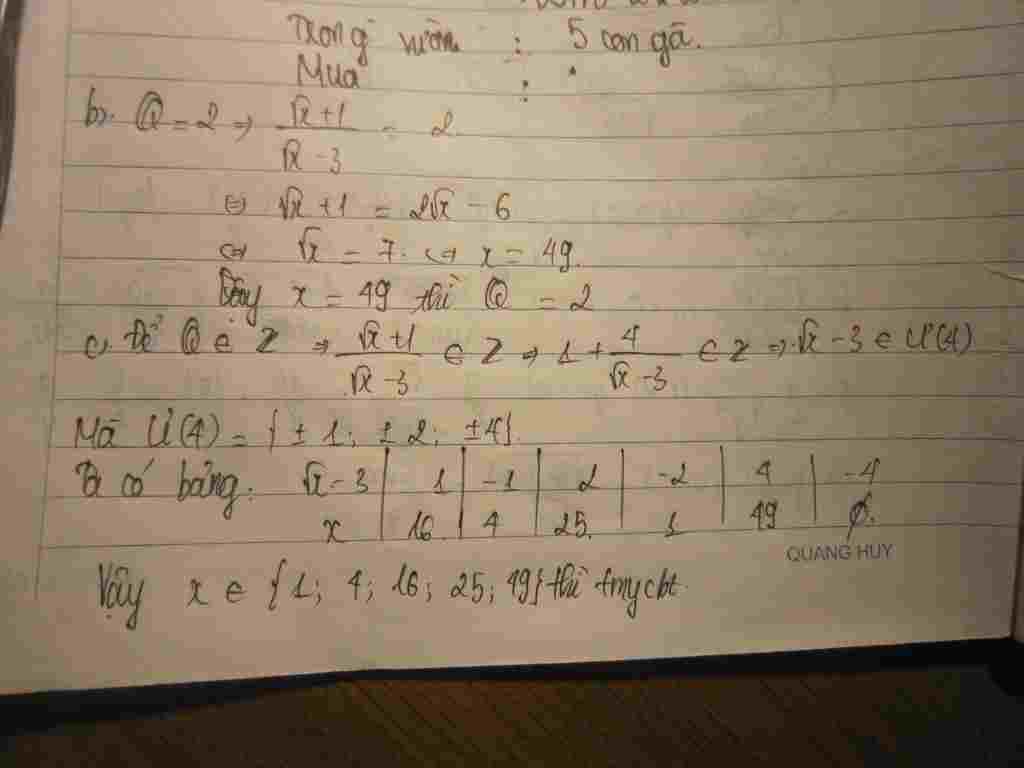 Trong vườn : 5 con gà.
Mua :
b). Q = 2 ⇒ (√x + 1)/(√x - 3) = 2
⇔ √x + 1 = 2√x - 6
⇔ √x = 7. ⇔ x = 49.
Vậy x = 49 thì Q = 2
c, Để Q ∈ Z ⇒ (√x + 1)/(√x - 3) ∈ Z ⇒ 1 + 4/(√x - 3) ∈ Z ⇒ √x - 3 ∈ Ư(4)
Mà Ư(4) = {± 1; ± 2; ±4}.
Ta có bảng: √x - 3 | 1 | -1 | 2 | -2 | 4 | -4
x | 16 | 4 | 25. | 1 | 49 | ∅.
QUANG HUY
Vậy x ∈ {1; 4; 16; 25; 49} thì tmycbt